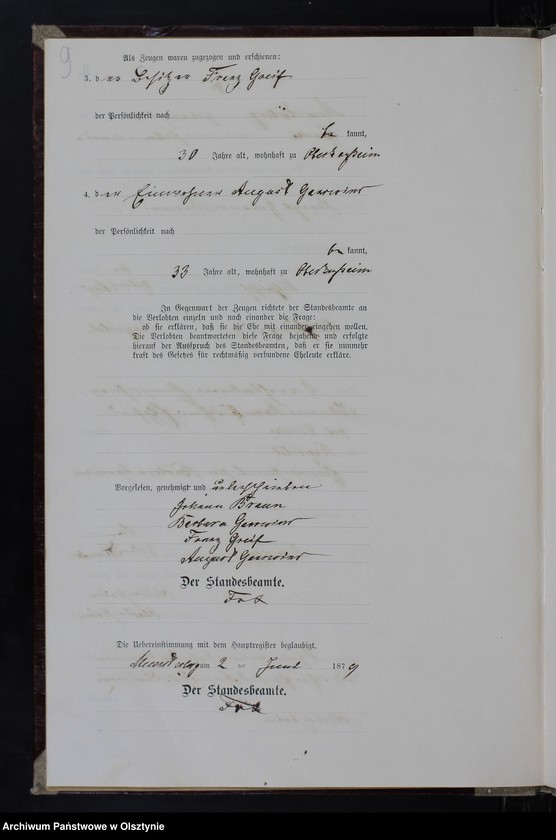 9
Als Zeugen waren zugezogen und erschienen:
3. der Besitzer Franz Greif
der Persönlichkeit nach
be kannt,
30 Jahre alt, wohnhaft zu
4. der Einwohner August
der Persönlichkeit nach
be kannt,
33 Jahre alt, wohnhaft zu
In Gegenwart der Zeugen richtete der Standesbeamte an
die Verlobten einzeln und nach einander die Frage:
ob sie erklären, daß sie die Ehe mit einander eingehen wollen.
Die Verlobten beantworteten diese Frage bejahend und erfolgte
hierauf der Ausspruch des Standesbeamten, daß er sie nunmehr
kraft des Gesetzes für rechtmäßig verbundene Eheleute erkläre.
Vorgelesen, genehmigt und unterschrieben
Johann Braun
Barbara
Franz Greif
August
Der Standesbeamte.
Die Uebereinstimmung mit dem Hauptregister beglaubigt.
am 2 ten Juni 1879
Der Standesbeamte.
Archiwum Państwowe w Olsztynie